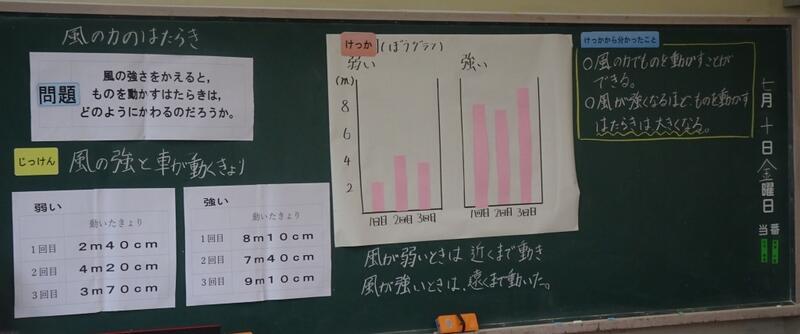 風の力のはたらき
問題
風の強さをかえると,
ものを動かすはたらきは,
どのようにかわるのだろうか。
じっけん
風の強さと車が動くきょり
弱い
動いたきょり
1回目 2m40cm
2回目 4m20cm
3回目 3m70cm
強い
動いたきょり
1回目 8m10cm
2回目 7m40cm
3回目 9m10cm
けっか
(ぼうグラフ)
弱い
(m)
8
6
4
2
1回目 2回目 3回目
強い
1回目 2回目 3回目
風が弱いときは近くまで動き
風が強いときは、遠くまで動いた。
けっかから分かったこと
○風の力でものを動かすことが
できる。
○風が強くなるほどものを動かす
はたらきは大きくなる。
七月十日金曜日
当番